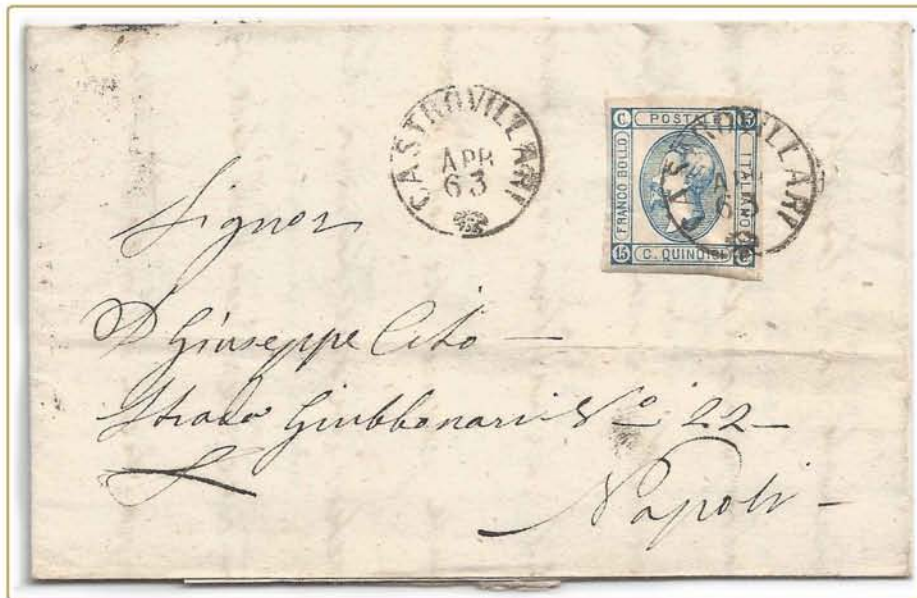 CASTROVILLARI
APR
63
C POSTALE 15
FRANCO BOLLO
ITALIANO
15 C. QUINDICI C
CASTROVILLARI
APR
63
Signor
D Giuseppe Cito —
Strada Giubbonari No 22 —
Napoli —